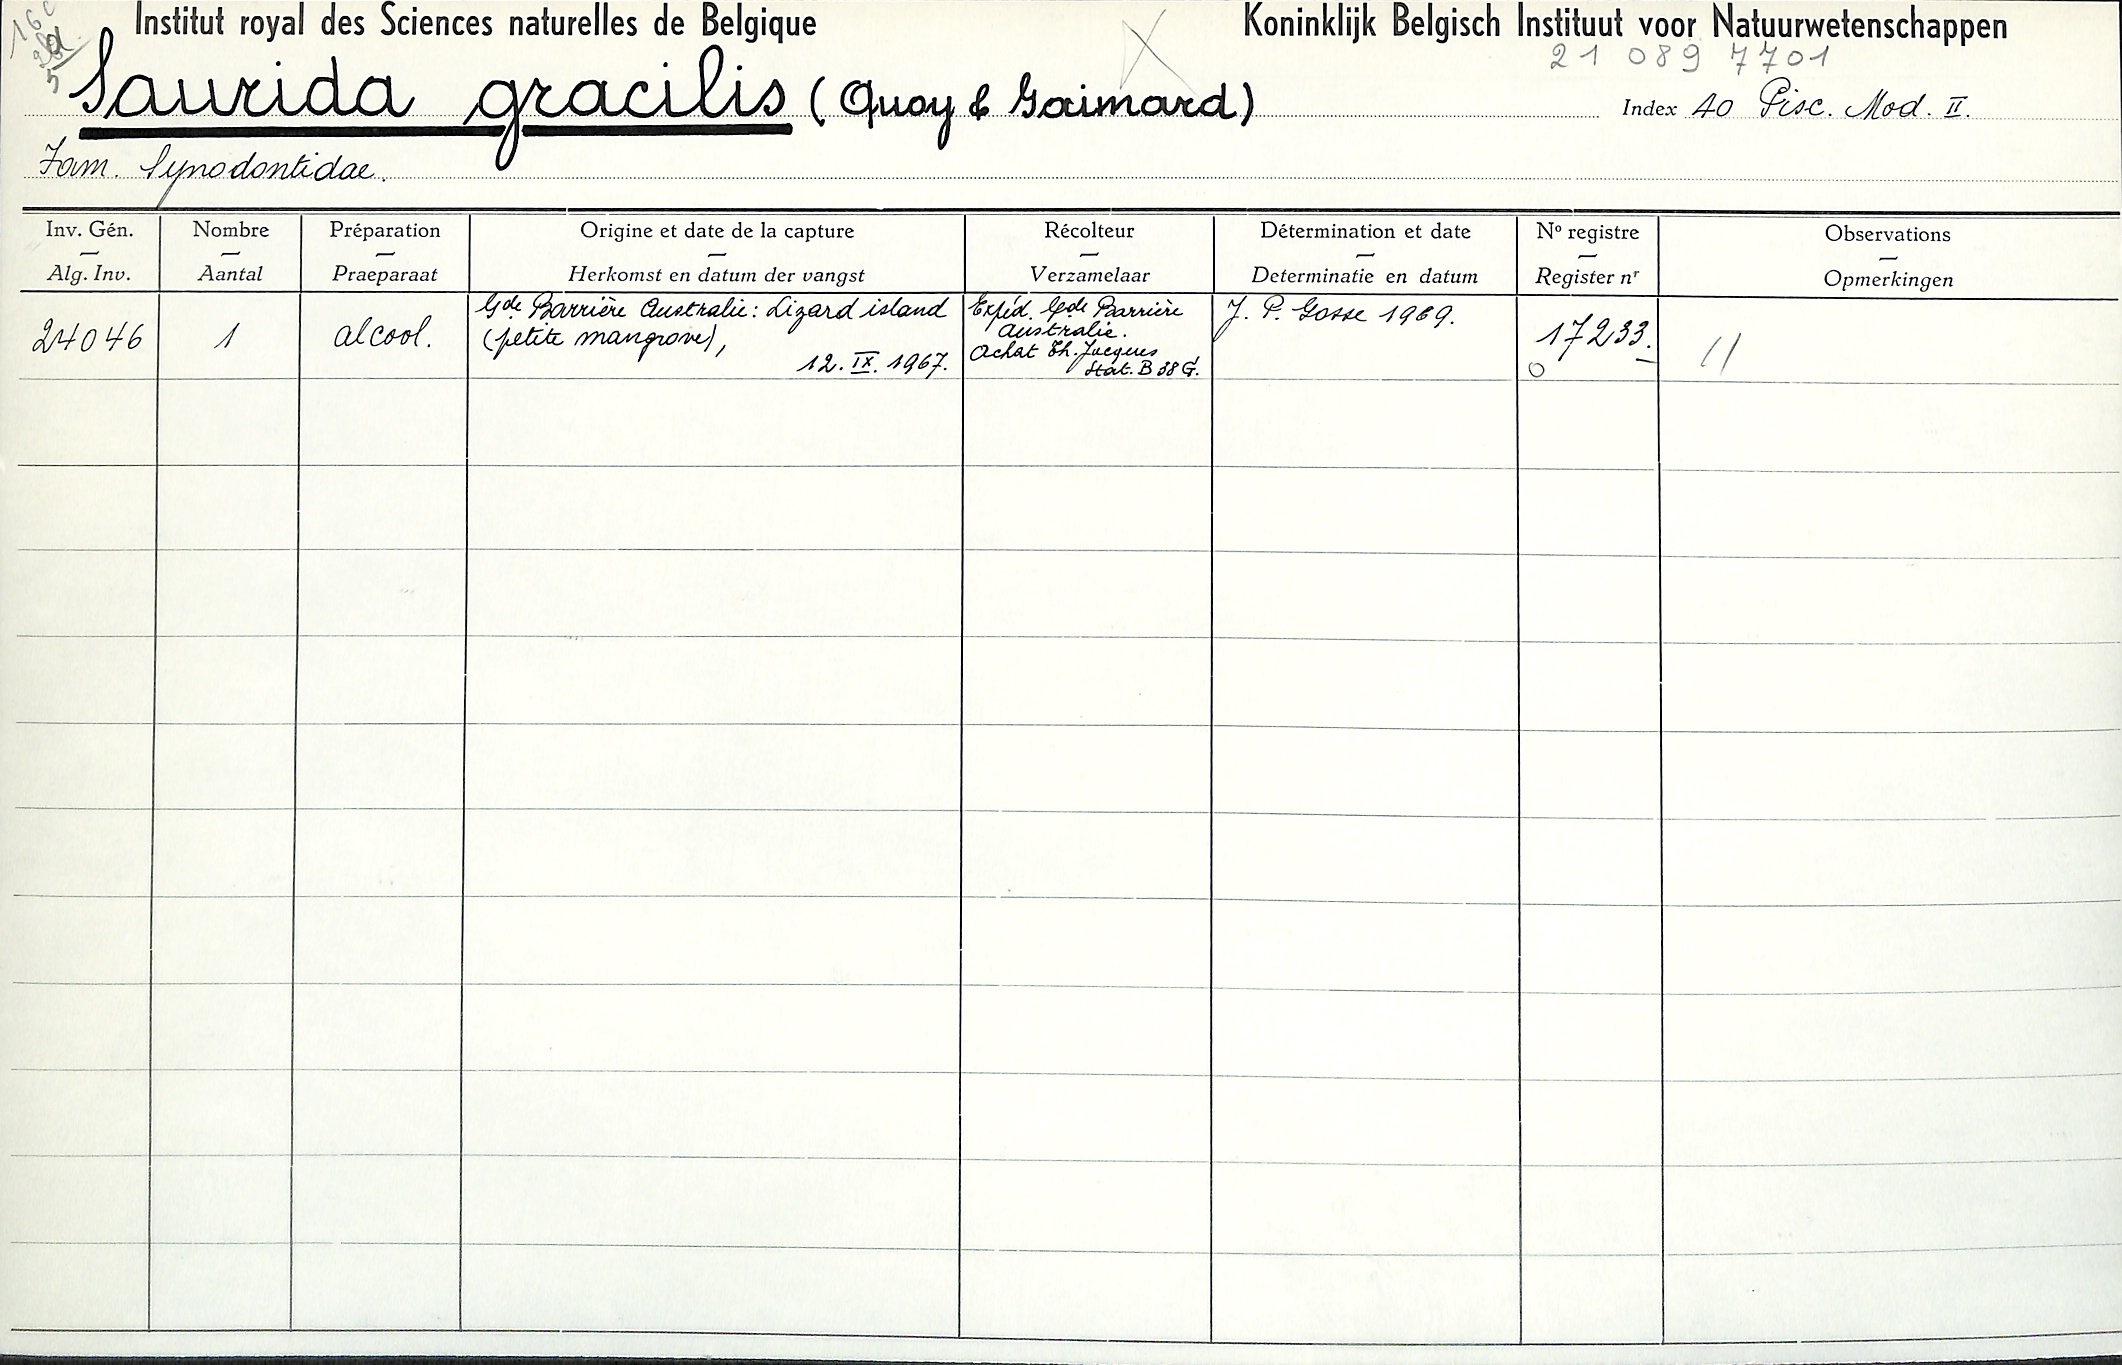 Institut royal des Sciences naturelles de Belgique
Koninklijk Belgisch Instituut voor Natuurwetenschappen
21 089 7701
Saurida gracilis (Quoy & Gaimard)
Index 40 Pisc. Mod. II.
Fam. Synodontidae.
Inv. Gén.
Alg. Inv.
Nombre
Aantal
Préparation
Praeparaat
Origine et date de la capture
Herkomst en datum der vangst
Récolteur
Verzamelaar
Détermination et date
Determinatie en datum
Nº registre
Register nʳ
Observations
Opmerkingen
24046
1
alcool.
Gde Barrière Australie: Lizard island
(petite mangrove),
12. IX. 1967.
Expéd. Gde Barrière
Australie.
Achat Th. Jacques
Stat. B 88 G.
J. P. Gosse 1969.
17233.